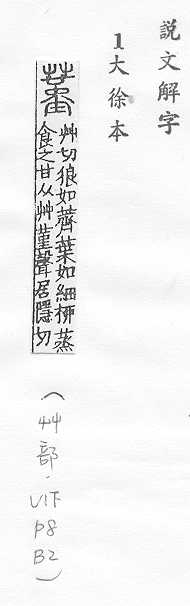 説文解字
1大徐本
蓳
艸也根如薺葉如細栁蒸
食之甘从艸堇聲居隱切
(艸部.V1下P8B2)